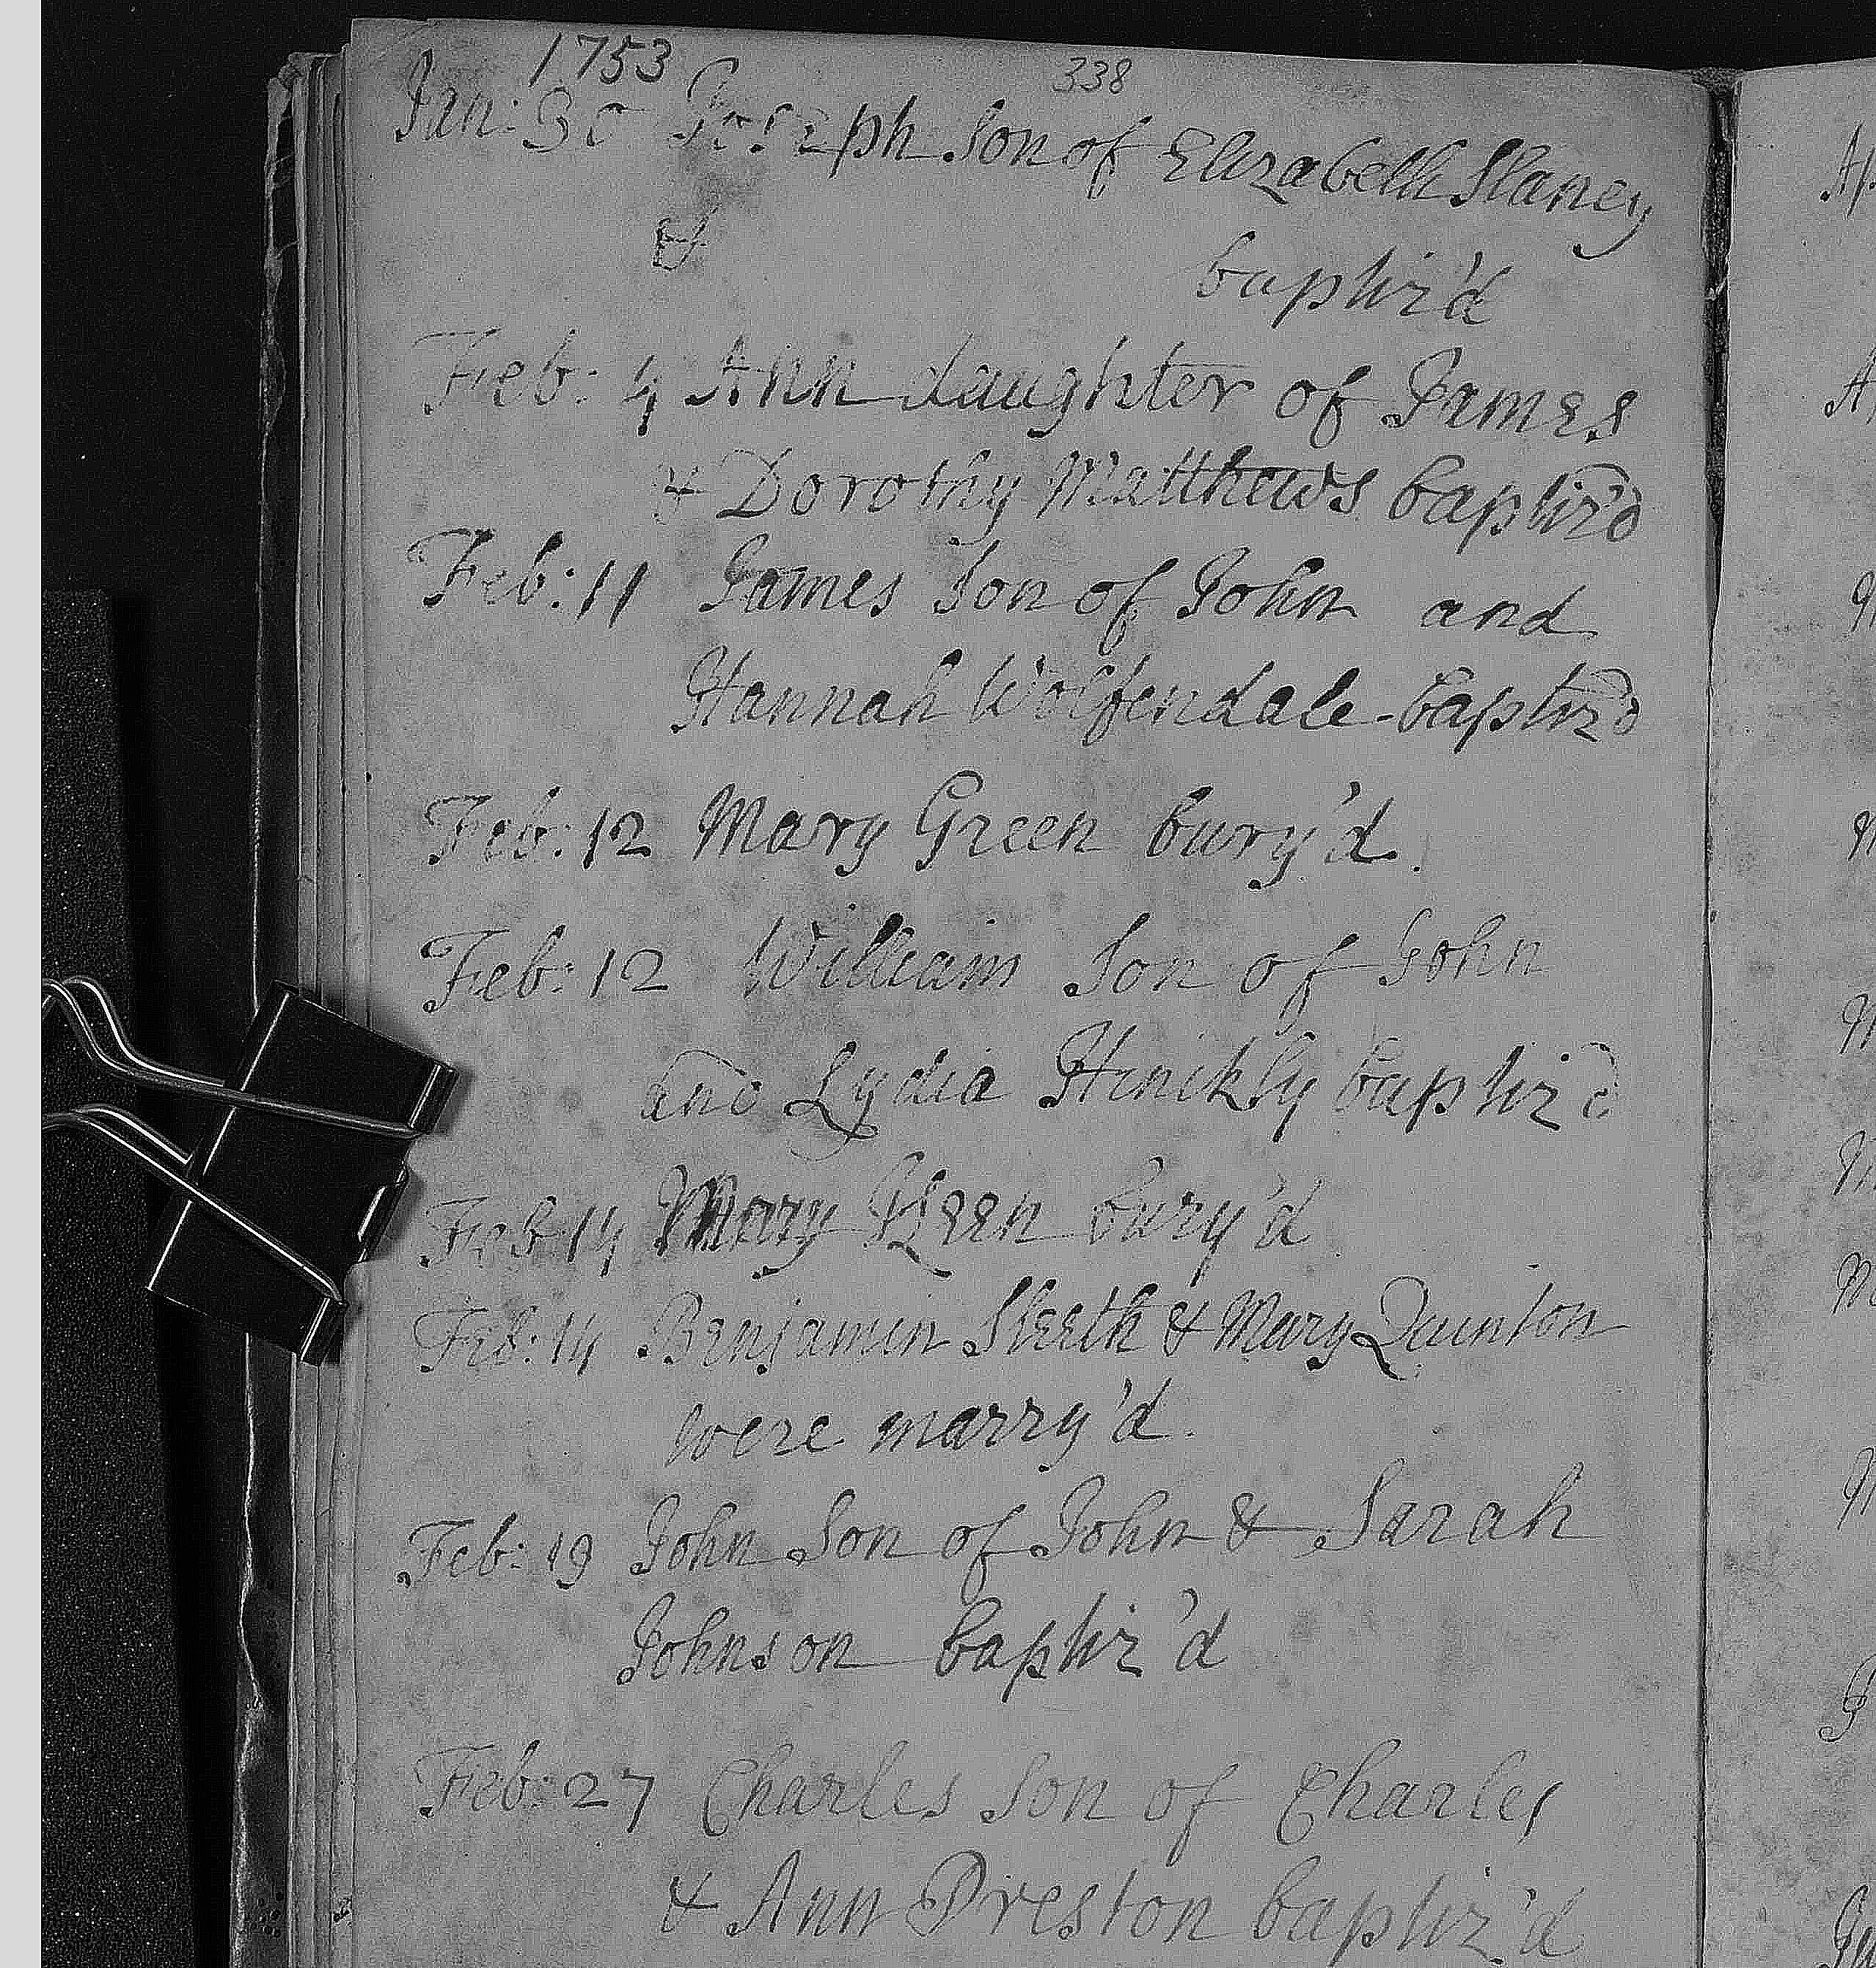 1753
338
Jan: 30 Joseph Son of Elizabeth Slaney
&
baptiz'd
Feb: 4 Ann daughter of James
& Dorothy Matthews baptiz'd
Feb: 11 James Son of John and
Hannah Wolfendale baptiz'd
Feb: 12 Mary Green bury'd.
Feb: 12 William Son of John
and Lydia Hinikly baptiz'd
Feb 14 Mary Keen bury'd
Feb: 14 Benjamin Sleeth & Mary Quinton
were marry'd.
Feb: 19 John Son of John & Sarah
Johnson baptiz'd
Feb: 27 Charles Son of Charles
& Ann Preston baptiz'd